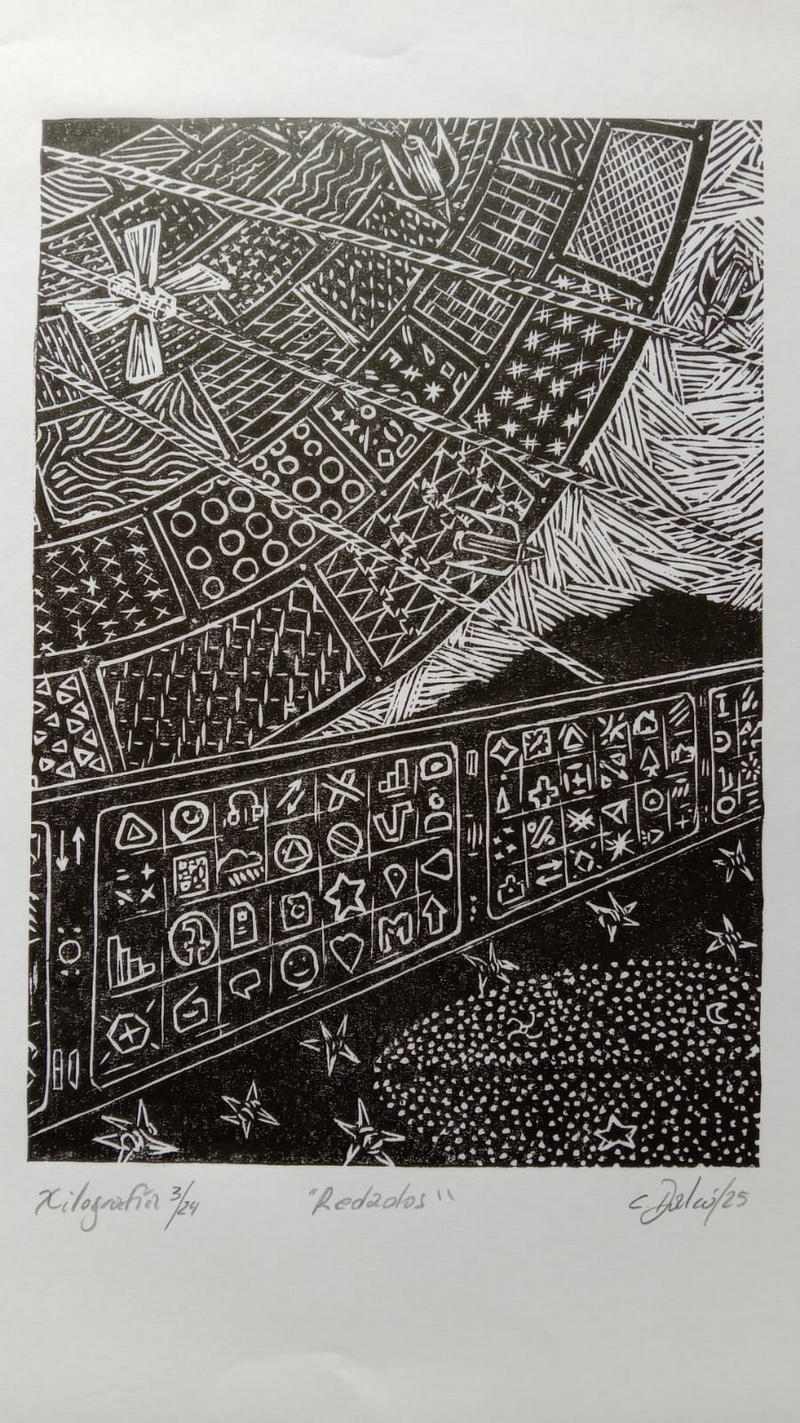 Xilografía 3/24 "Redados" C. Dalcó/25